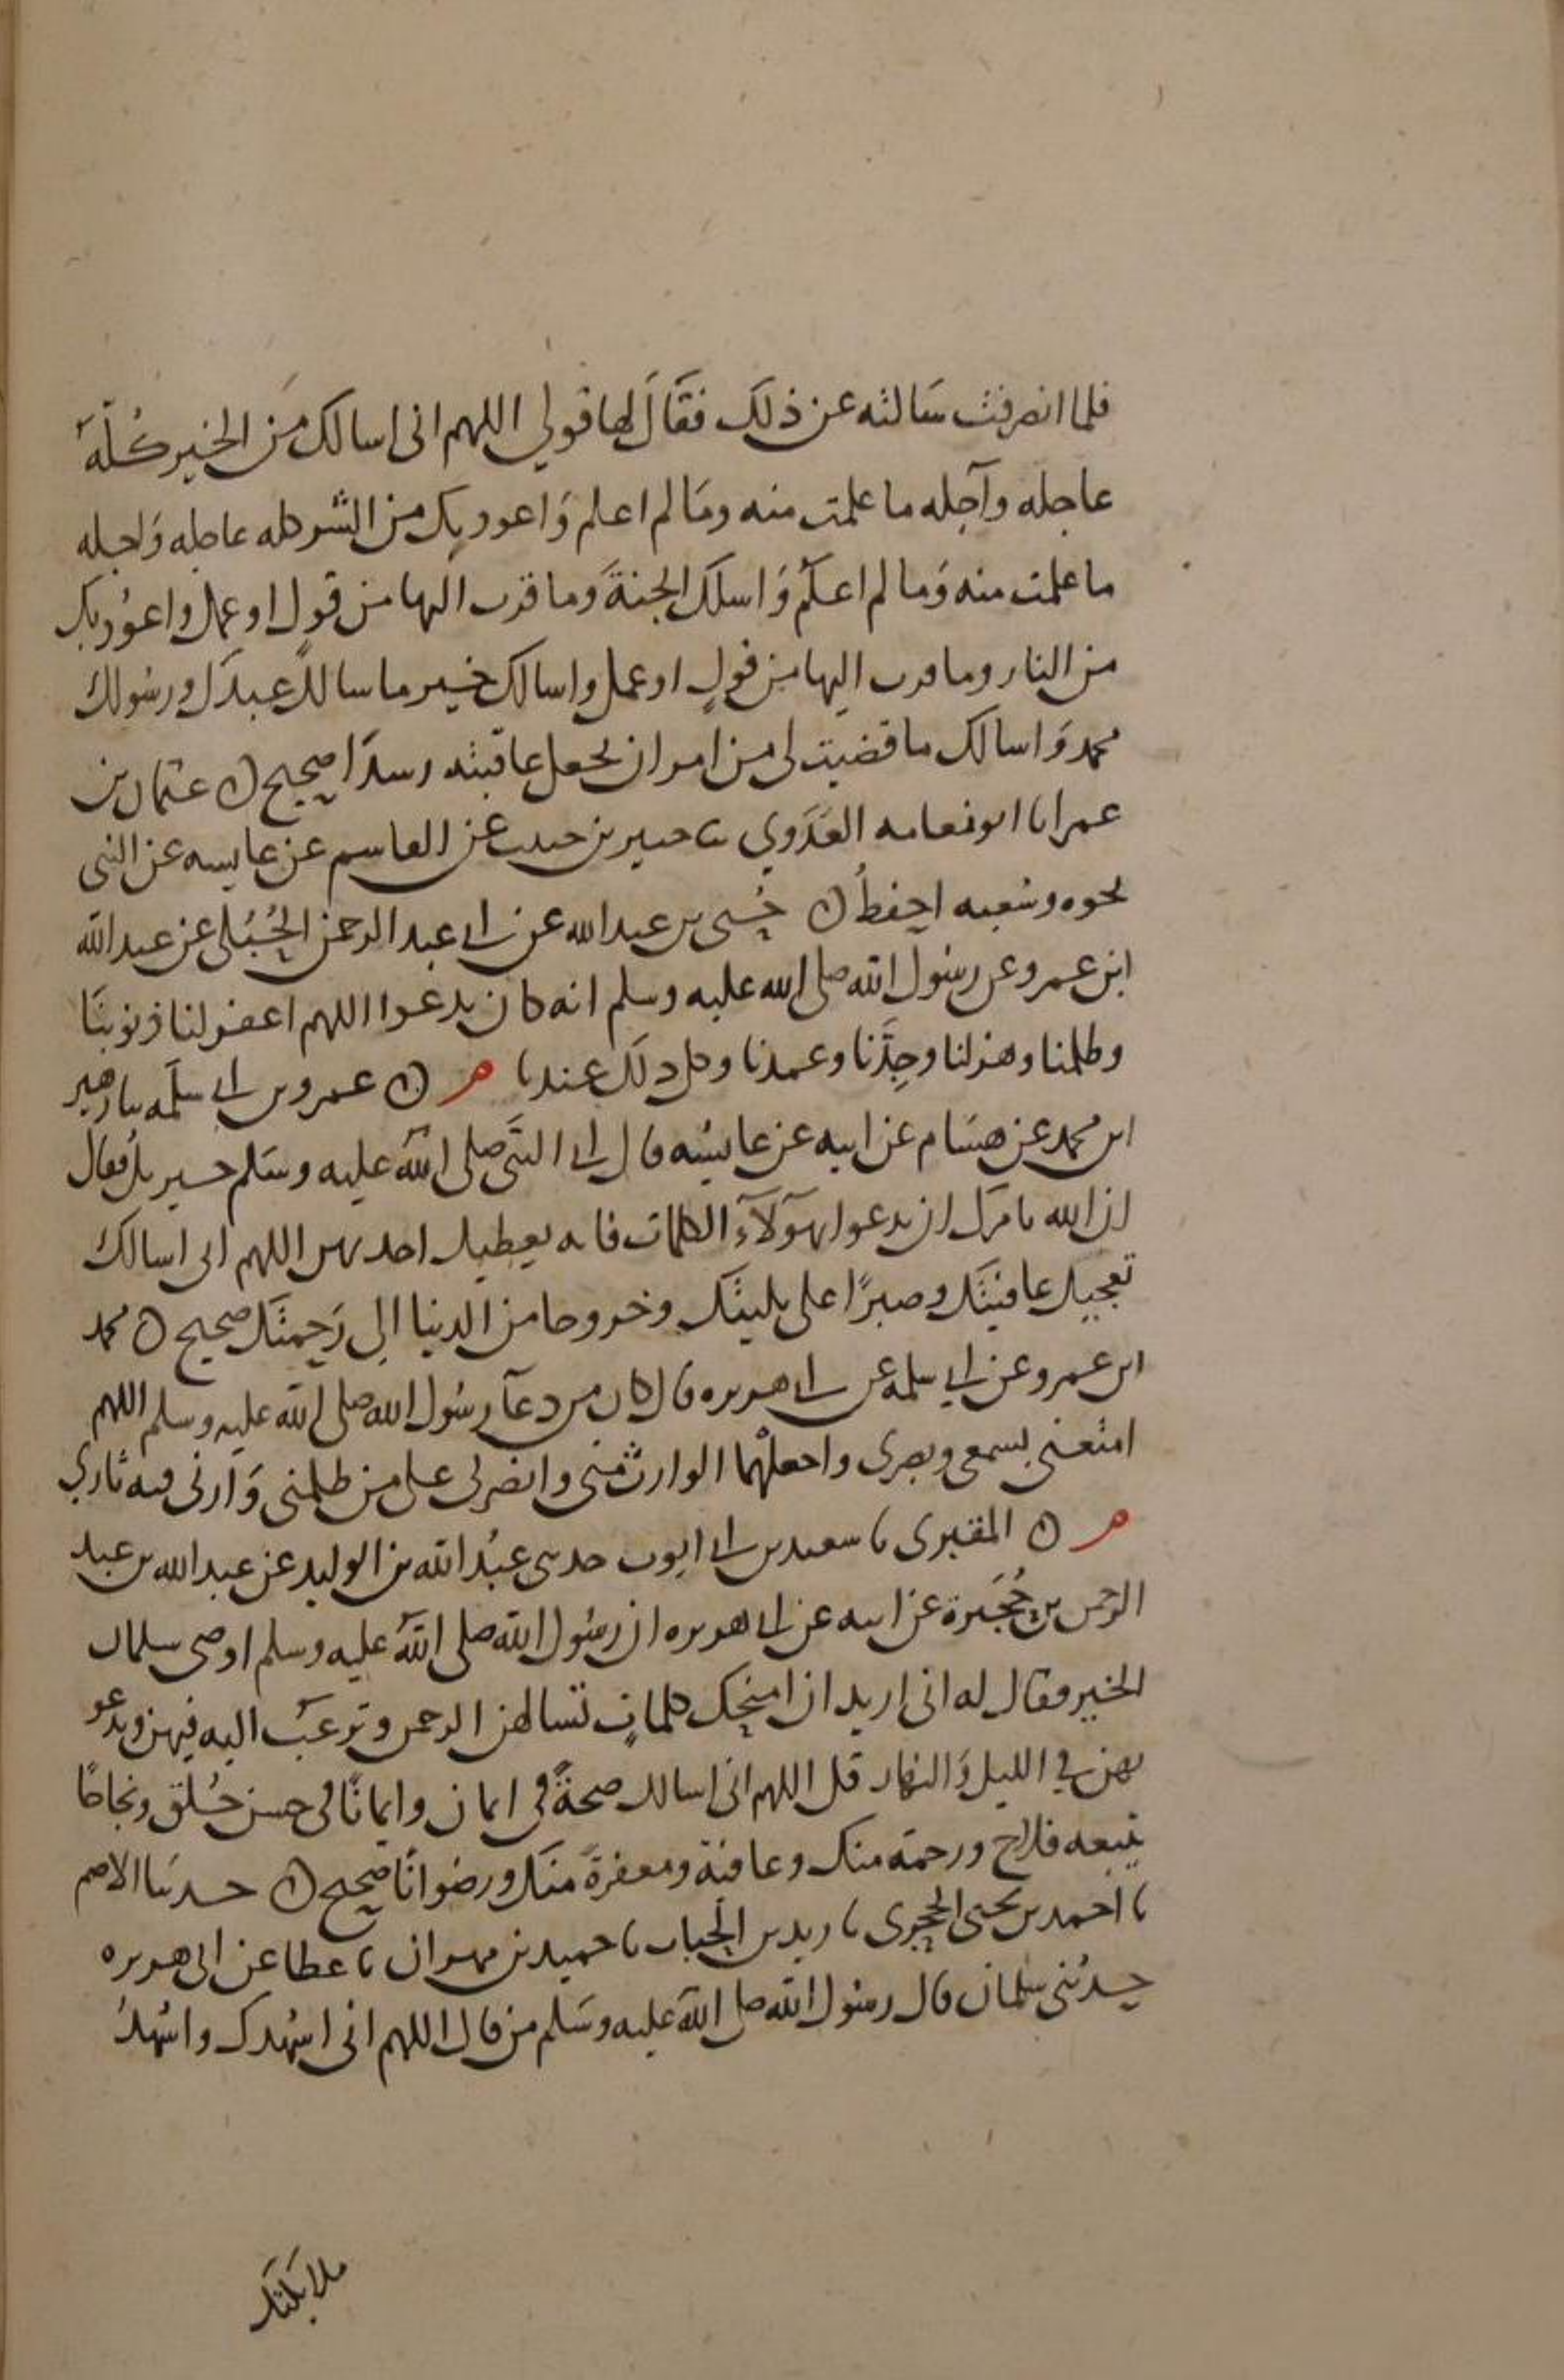 فلما انصرفت سالته عن ذلك فقال لها قولي اللهم انى اسالك من الخير كله
عاجله وآجله ما علمت منه وما لم اعلم واعوذ بك من الشر كله عاجله واجله
ما علمت منه وما لم اعلم واسلك الجنة وما قرب اليها من قول او عمل واعوذ بك
من النار وما قرب اليها من قول او عمل واسالك خير ما سالك عبدك ورسولك
محمد واسالك ما قضيت لى من امر ان تجعل عاقبته رشدا صحيح ه عثمان بن
عمر انا ابو نعامه العدوي ثنا جبير بن حبيب عن القاسم عن عايشه عن النبى
نحوه وشعبه احفظ ه حُيَى بن عبد الله عن ابى عبد الرحمن الحُبُلى عن عبد الله
ابن عمرو عن رسول الله صلى الله عليه وسلم انه كان يدعوا اللهم اغفر لنا ذنوبنا
وظلمنا وهزلنا وجِدَّنا وعمدنا وكل ذلك عندنا م ه عمرو بن ابى سلمه ثنا زهير
ابن محمد عن هشام عن ابيه عن عايشه قال اتى النبى صلى الله عليه وسلم جبريل فقال
ان الله يامرك ان تدعوا بهؤلآء الكلمات فانه يعطيك احديهن اللهم انى اسالك
تعجيل عافيتك وصبرًا على بليتك وخروجا من الدنيا الى رحمتك صحيح ه محمد
ابن عمرو عن ابى سلمه عن ابى هريره قال كان من دعآ رسول الله صلى الله عليه وسلم اللهم
امتعنى بسمعى وبصرى واجعلهما الوارث منى وانصرنى على من ظلمنى وارنى فيه ثاري
م ه المقبرى نا سعيد بن ابى ايوب حدثنى عبد الله بن الوليد عن عبد الله بن عبد
الرحمن بن حُجَيرة عن ابيه عن ابى هريره ان رسول الله صلى الله عليه وسلم اوصى سلمان
الخير فقال له انى اريد ان امنحك كلماتٍ تسالهن الرحمن وترغب اليه فيهن وتدعو
بهن في الليل والنهار قل اللهم انى اسالك صحةً فى ايمان وايمانًا فى حسن خُلق ونجاحًا
يتبعه فلاح ورحمة منك وعافية ومغفرةً منك ورضوانًا صحيح ه حدثنا الاصم
نا احمد بن يحيى الحجرى نا زيد بن الحباب نا حميد بن مهران نا عطا عن ابى هريره
حدثنى سلمان قال رسول الله صلى الله عليه وسلم من قال اللهم انى اشهدك واشهد
ملايكتك